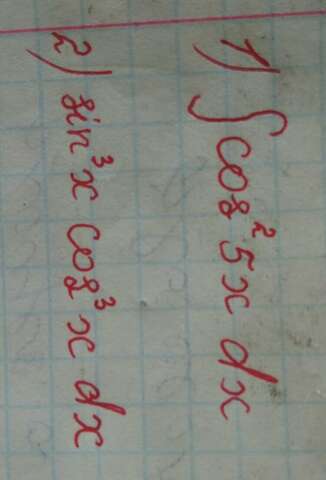 1) ∫ cos² 5x dx
2) sin³ x cos³ x dx